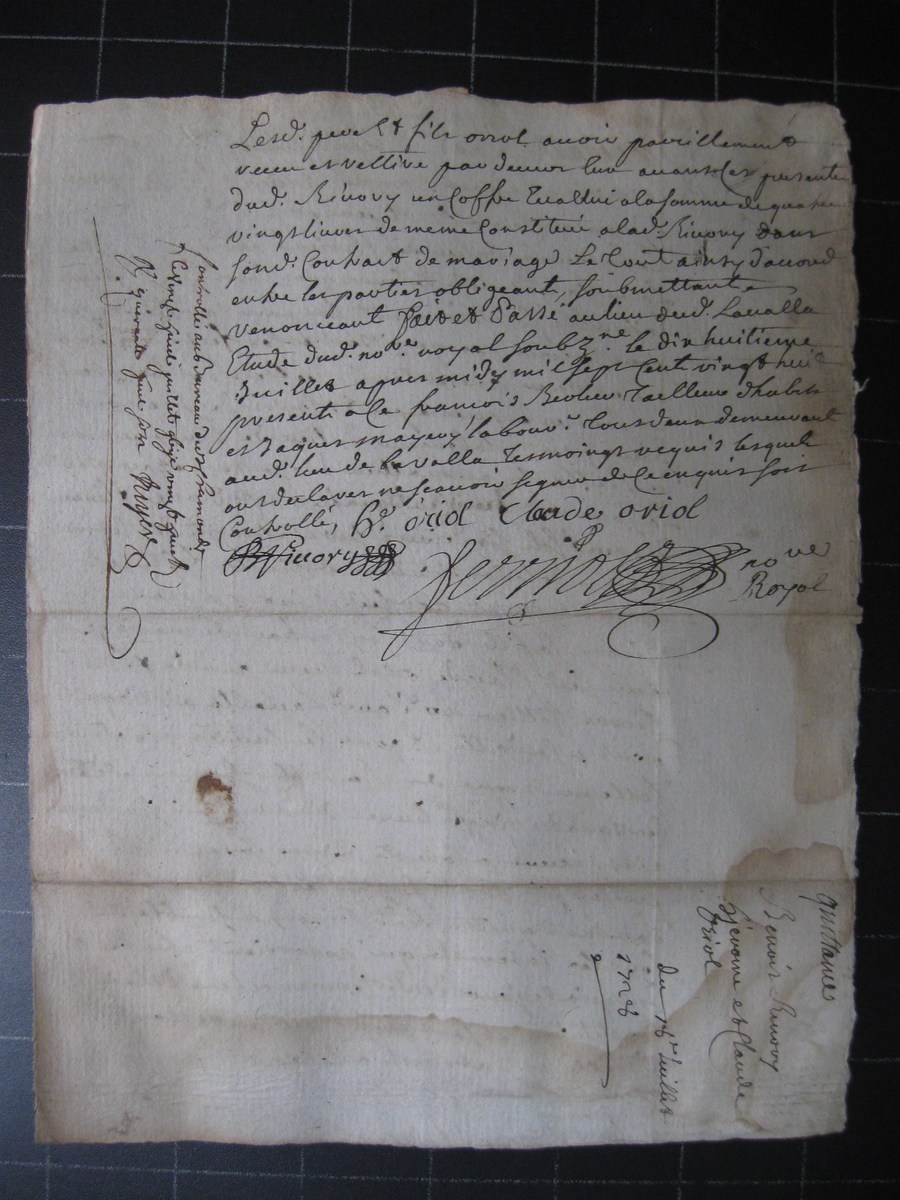 Lesd. pere et fils oriol avoir pareillement
receu et rettiré par devers eux avant ces presentes
dud. Rivory un Coffre Evallué a la somme de quatre
vingt livres de meme Constitué a lad. Rivory dans
sond. Contract de mariage Le tout ainsy d'accord
entre les parties obligeant, soubmettant
renonceant fait et Passé au lieu dud. Lavalla
Etude dud. nore. royal soubzne. le dix huitieme
Juillet apres midy mil sept cent vingt huit
presents a ce francois Taelleur d'habits
et Jaques labourr. tous deux demeurant
aud. lieu de Lavalla tesmoings requis lesquels
ont declarer ne scavoir signer de ce enquis soit
Controllé, hr. oriol Claude oriol
B Rivory
nore
Royal
Controllé au bureau de St Chamond
le vingt juillet vingt huit
quittance
Benoit Rivory
Jerome et Claude
Oriol
du 18e. Juillet
1728